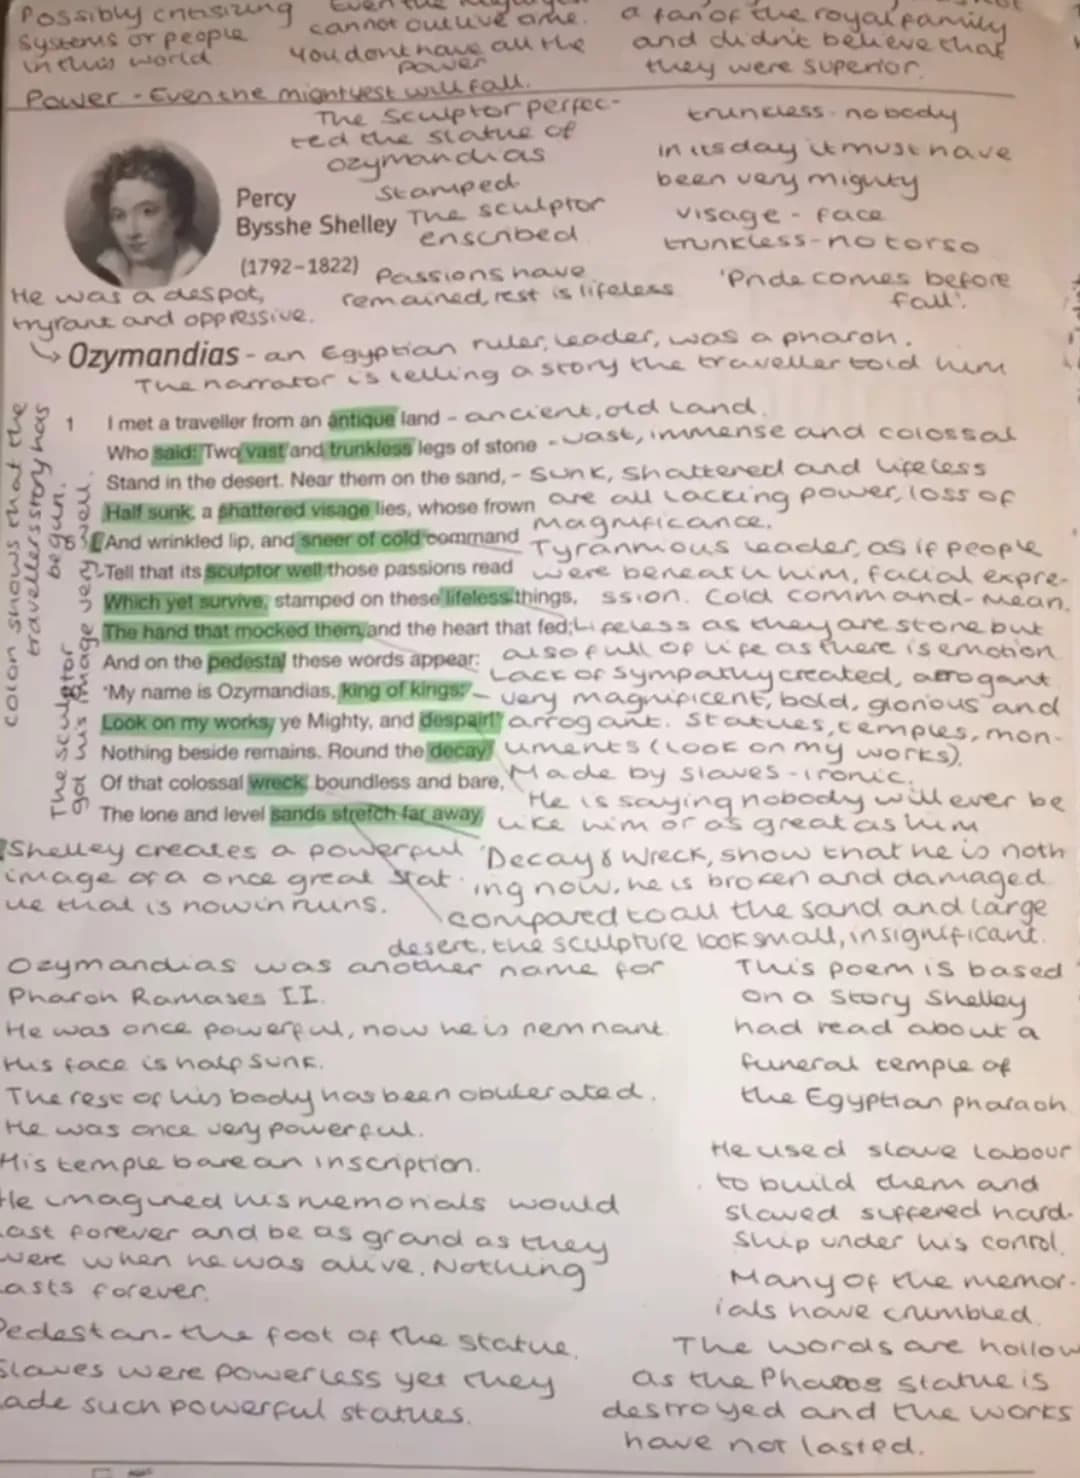 Possibly critisizing
systems or people
in this world
Even the
cannot outlive time.
You dont have all the
power
a fan of the royal family
and didn't believe that
they were superior.
Power - Even the mightyest will fall.
The sculptor perfec-
ted the statue of
ozymandias
Stamped
The sculptor
enscribed
Passions have
remained, rest is lifeless
trunkless - nobody
in its day it must have
been very mighty
visage - face
trunkless - no torso
'Pride comes before
fall'.
Percy
Bysshe Shelley
(1792–1822)
He was a despot,
tryrant and oppressive.
Ozymandias - an Egyptian ruler, leader, was a pharoh.
The narrator is telling a story the traveller told him
colon shows that the
travellers story has
begun.
The sculptor
got his image very well.
1 I met a traveller from an antique land - ancient, old land.
Who said: 'Two vast and trunkless legs of stone - vast, immense and colossal
Stand in the desert. Near them on the sand, - Sunk, shattered and lifeless
Half sunk, a shattered visage lies, whose frown are all lacking power, loss of
magnificance.
5 And wrinkled lip, and sneer of cold command Tyrannious leader, as if people
Tell that its sculptor well those passions read were beneath him, facial expre-
Which yet survive, stamped on these lifeless things, ssion. Cold command - mean.
The hand that mocked them, and the heart that fed; Lifeless as they are stone but
also full of life as there is emotion
And on the pedestal these words appear: Lack of sympathy created, arrogant
"My name is Ozymandias, king of kings: - very magnificent, bold, glorious and
Look on my works, ye Mighty, and despair!" arrogant. Statues, temples, mon-
Nothing beside remains. Round the decay uments (look on my works).
Of that colossal wreck, boundless and bare, Made by slaves - ironic.
The lone and level sands stretch far away. He is saying nobody will ever be
like him or as great as him
Shelley creates a powerful
image of a once great stat
ue that is now in ruins.
'Decay & Wreck, show that he is noth
ing now, he is broken and damaged
compared to all the sand and large
desert, the sculpture look small, insignificant.
Ozymandias was another name for
Pharoh Ramases II.
He was once powerful, now he is remnant
His face is half sunk.
The rest of his body has been obliterated.
He was once very powerful.
His temple bare an inscription.
He imagined his memorials would
last forever and be as grand as they
were when he was alive. Nothing
lasts forever.
Pedestan - the foot of the statue.
Slaves were powerless yet they
made such powerful statues.
This poem is based
on a story Shelley
had read about a
funeral temple of
the Egyptian pharaoh
He used slave labour
to build them and
slaved suffered hard-
ship under his conrol.
Many of the memor-
ials have crumbled.
The words are hollow
as the Pharos statue is
destroyed and the works
have not lasted.